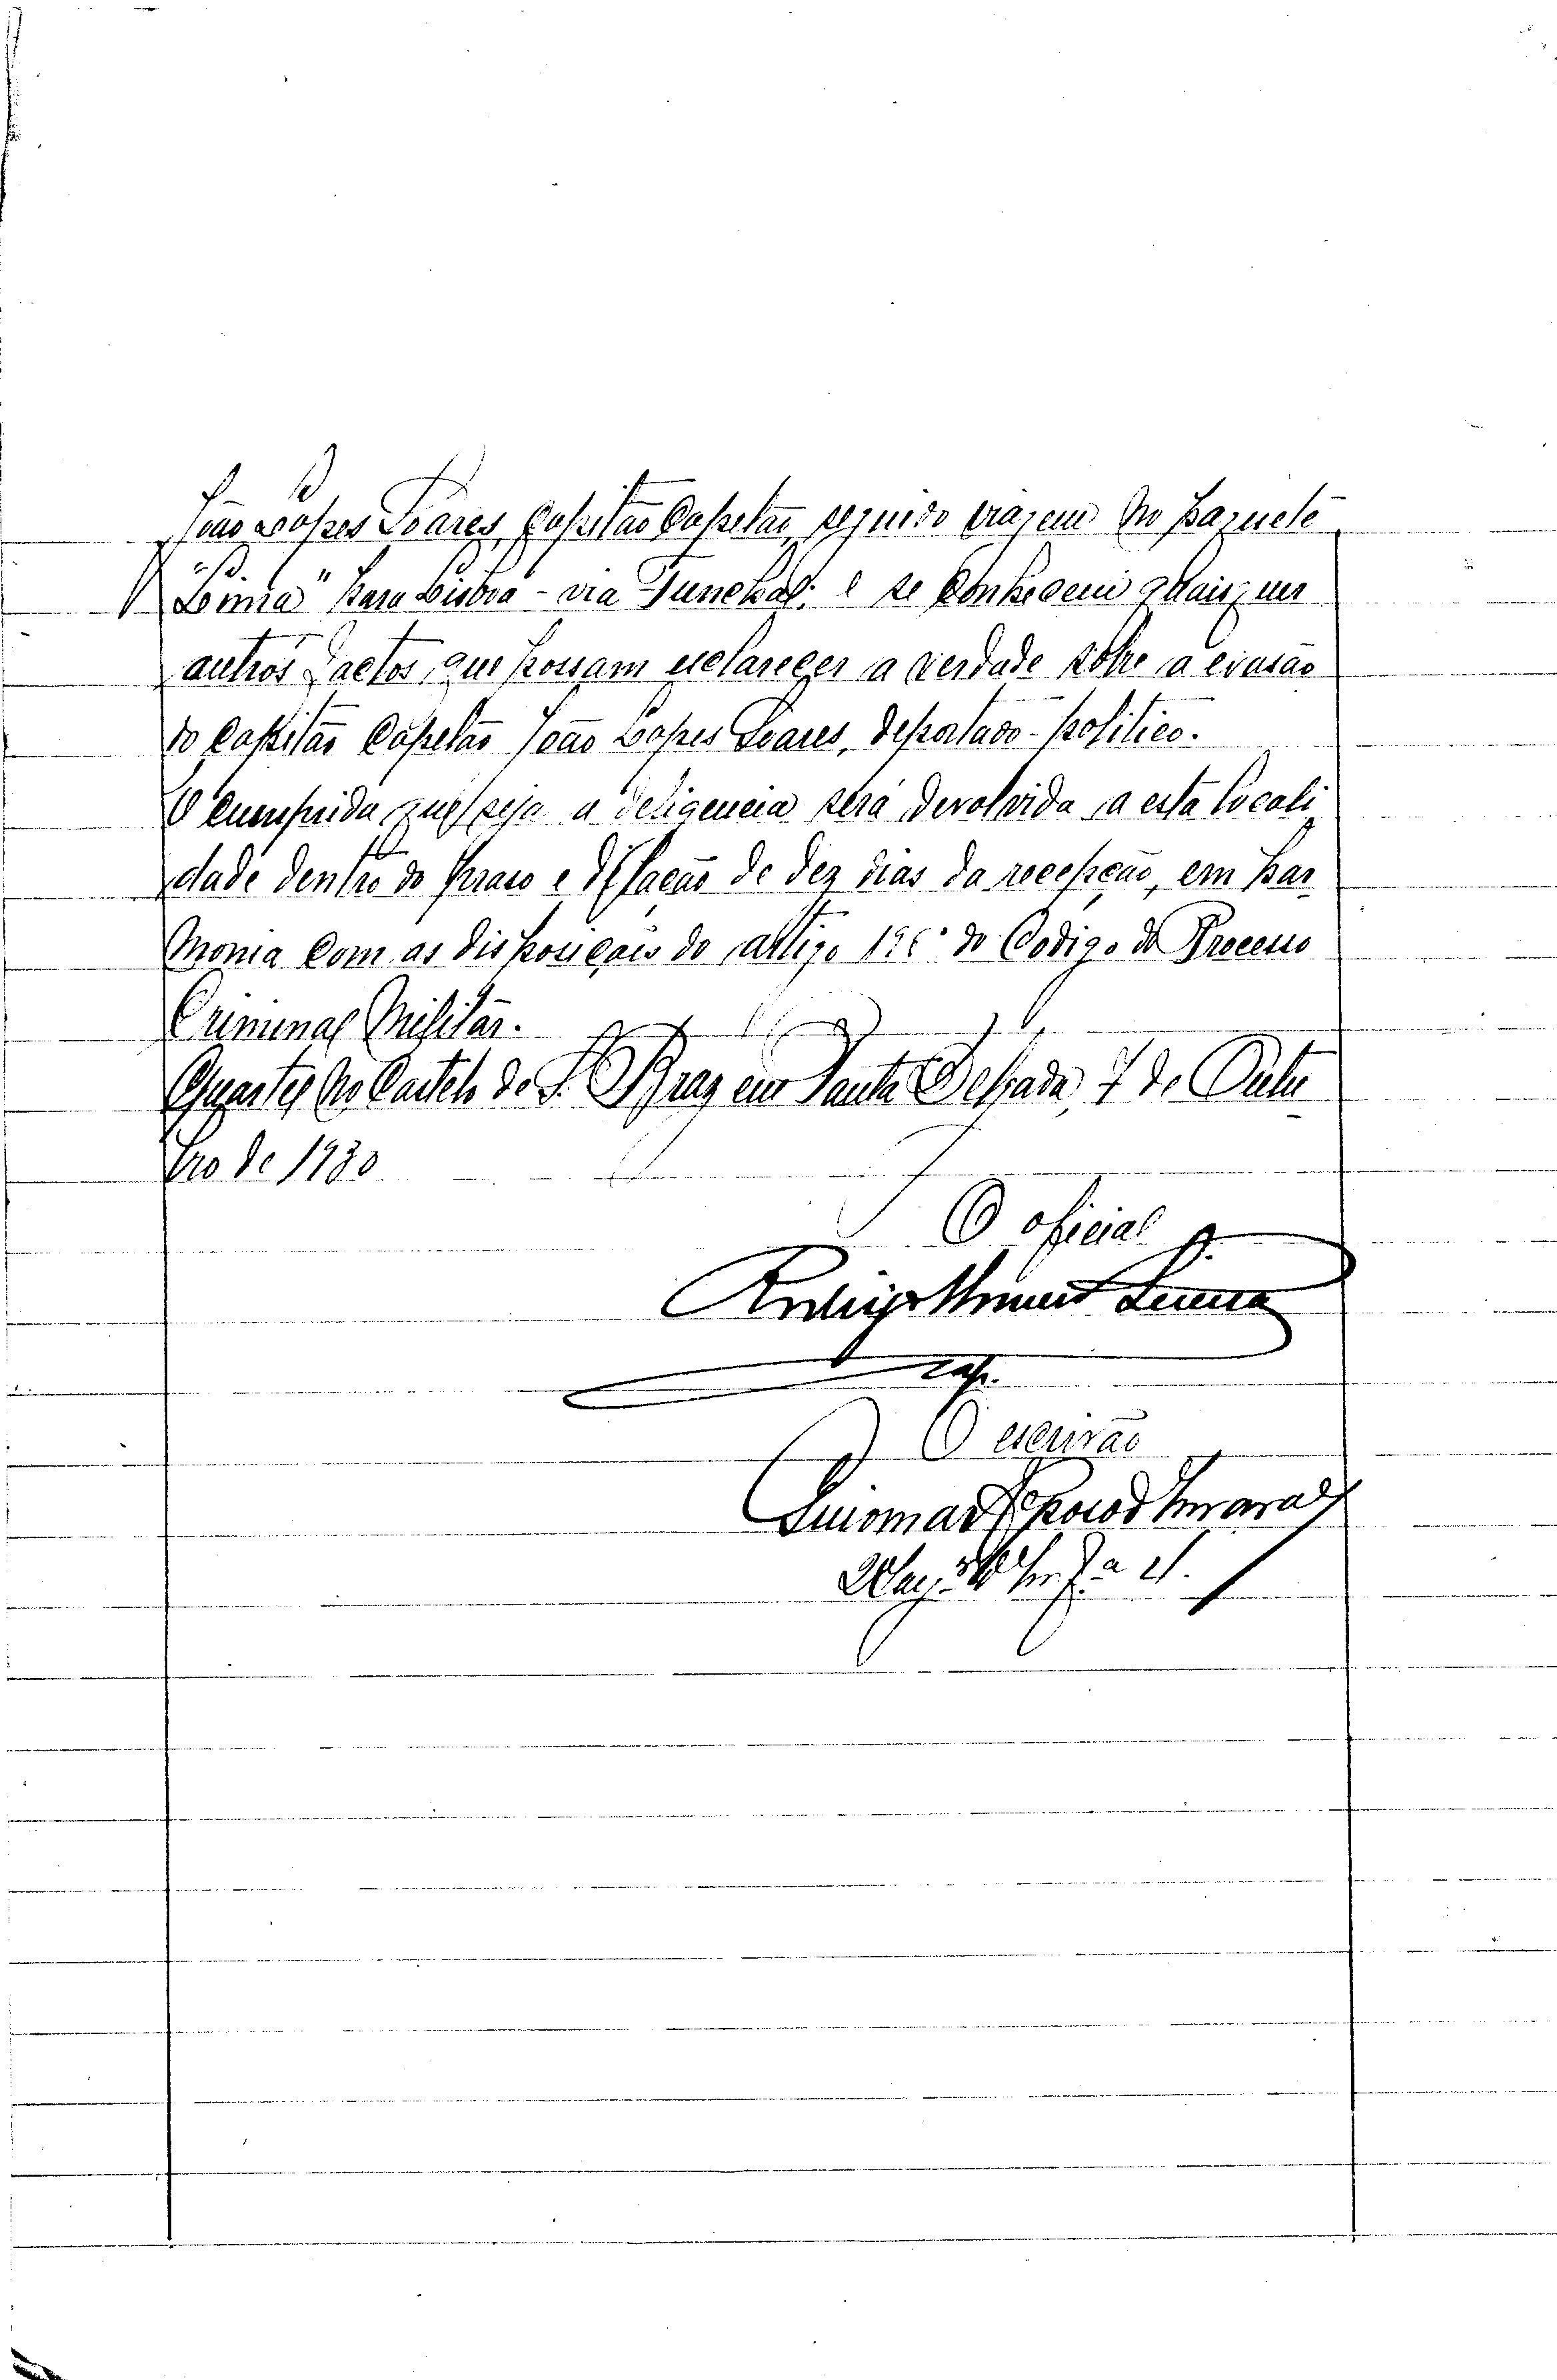 João Lopes Soares, Capitão Capelão, seguido viagem no paquete
"Lima" para Lisboa - via Funchal; e se conhecem quaisquer
outros factos, que possam esclarecer a verdade sobre a evasão
do Capitão Capelão João Lopes Soares, deportado-politico.
E cumprida que seja a deligencia será devolvida a esta locali
dade dentro do praso e dilação de dez dias da recepção, em har
monia com as disposições do artigo do Codigo do Processo
Criminal Militar.
Quartel no Castelo de S. Braz em Ponta Delgada, 7 de Outu
bro de 1930
O oficial
Cap.
O escrivão
Guiomar Amaral